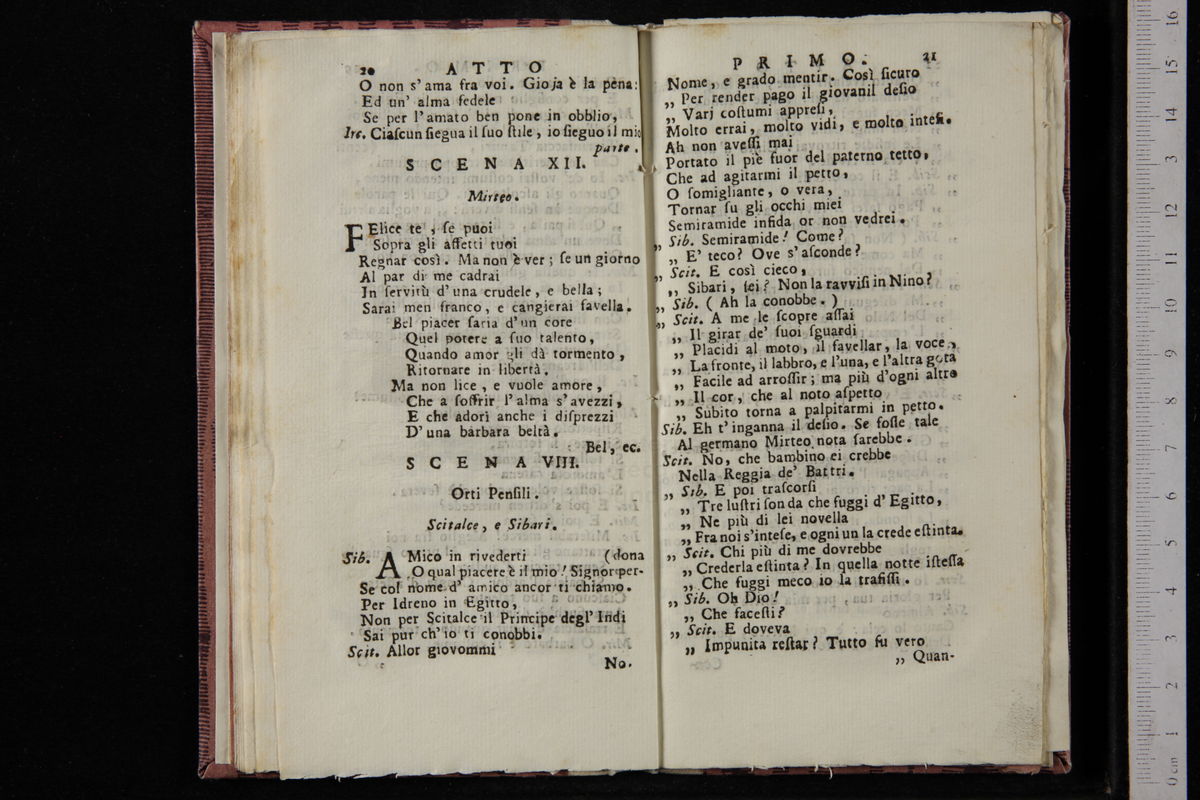 20 ATTO
O non s'ama fra voi. Gioja è la pena:
Ed un' alma fedele
Se per l'amato ben pone in obblio,
Irc. Ciaſcun ſiegua il ſuo ſtile, io ſieguo il mio
parte.
SCENA XII.
Mirteo.
FElice te, ſe puoi
Sopra gli affetti tuoi
Regnar così. Ma non è ver; ſe un giorno
Al par di me cadrai
In ſervitù d'una crudele, e bella;
Sarai men franco, e cangierai favella.
Bel piacer ſaria d'un core
Quel potere a ſuo talento,
Quando amor gli dà tormento,
Ritornare in libertà.
Ma non lice, e vuole amore,
Che a ſoffrir l'alma s'avezzi,
E che adori anche i diſprezzi
D'una barbara beltà.
Bel, ec.
SCENA VIII.
Orti Penſili.
Scitalce, e Sibari.
Sib. AMico in rivederti (dona
O qual piacere è il mio! Signor per-
Se col nome d'amico ancor ti chiamo.
Per Idreno in Egitto,
Non per Scitalce il Principe degl' Indi
Sai pur ch'io ti conobbi.
Scit. Allor giovommi
No.
PRIMO. 21
Nome, e grado mentir. Così ſicuro
„ Per render pago il giovanil deſio
„ Varj coſtumi appreſi,
Molto errai, molto vidi, e molto inteſi.
Ah non aveſſi mai
Portato il piè fuor del paterno tetto,
Che ad agitarmi il petto,
O ſomigliante, o vera,
Tornar ſu gli occhi miei
Semiramide infida or non vedrei.
„ Sib. Semiramide! Come?
„ E' teco? Ove s'aſconde?
„ Scit. E così cieco,
„ Sibari, ſei? Non la ravviſi in Nino?
„ Sib. (Ah la conobbe.)
„ Scit. A me le ſcopre aſſai
„ Il girar de' ſuoi ſguardi
„ Placidi al moto, il favellar, la voce,
„ La fronte, il labbro, e l'una, e l'altra gota
„ Facile ad arroſſir; ma più d'ogni altro
„ Il cor, che al noto aſpetto
„ Subito torna a palpitarmi in petto.
Sib. Eh t'inganna il deſio. Se foſſe tale
Al germano Mirteo nota ſarebbe.
Scit. No, che bambino ei crebbe
Nella Reggia de' Battri.
„ Sib. E poi traſcorſi
„ Tre luſtri ſon da che fuggì d'Egitto,
„ Ne più di lei novella
„ Fra noi s'inteſe, e ogni un la crede eſtinta.
„ Scit. Chi più di me dovrebbe
„ Crederla eſtinta? In quella notte iſteſſa
„ Che fuggi meco io la trafiſſi.
„ Sib. Oh Dio!
„ Che faceſti?
„ Scit. E doveva
„ Impunita reſtar? Tutto fu vero
„ Quan-
0 cm 1 2 3 4 5 6 7 8 9 10 11 12 13 14 15 16